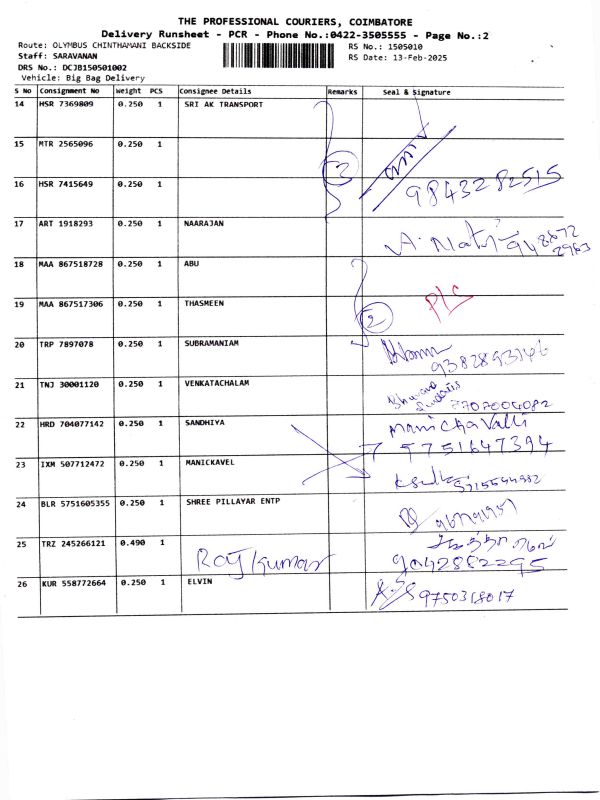 THE PROFESSIONAL COURIERS, COIMBATORE
Delivery Runsheet - PCR - Phone No.:0422-3505555 - Page No.:2
Route: OLYMBUS CHINTHAMANI BACKSIDE RS No.: 1505010
Staff: SARAVANAN RS Date: 13-Feb-2025
DRS No.: DCJB150501002
Vehicle: Big Bag Delivery
S No Consignment No Weight PCS Consignee Details Remarks Seal & Signature
14 HSR 7369809 0.250 1 SRI AK TRANSPORT
15 MTR 2565096 0.250 1
16 HSR 7415649 0.250 1 3 9843282515
17 ART 1918293 0.250 1 NAARAJAN
18 MAA 867518728 0.250 1 ABU
19 MAA 867517306 0.250 1 THASMEEN 2 PLC
20 TRP 7897078 0.250 1 SUBRAMANIAM 9382893146
21 TNJ 30001120 0.250 1 VENKATACHALAM 7707004082
22 HRD 704077142 0.250 1 SANDHIYA Manichavalli
5751647394
23 IXM 507712472 0.250 1 MANICKAVEL
24 BLR 5751605355 0.250 1 SHREE PILLAYAR ENTP
25 TRZ 245266121 0.490 1 Rajkumar 9042882295
26 KUR 558772664 0.250 1 ELVIN 9750318017